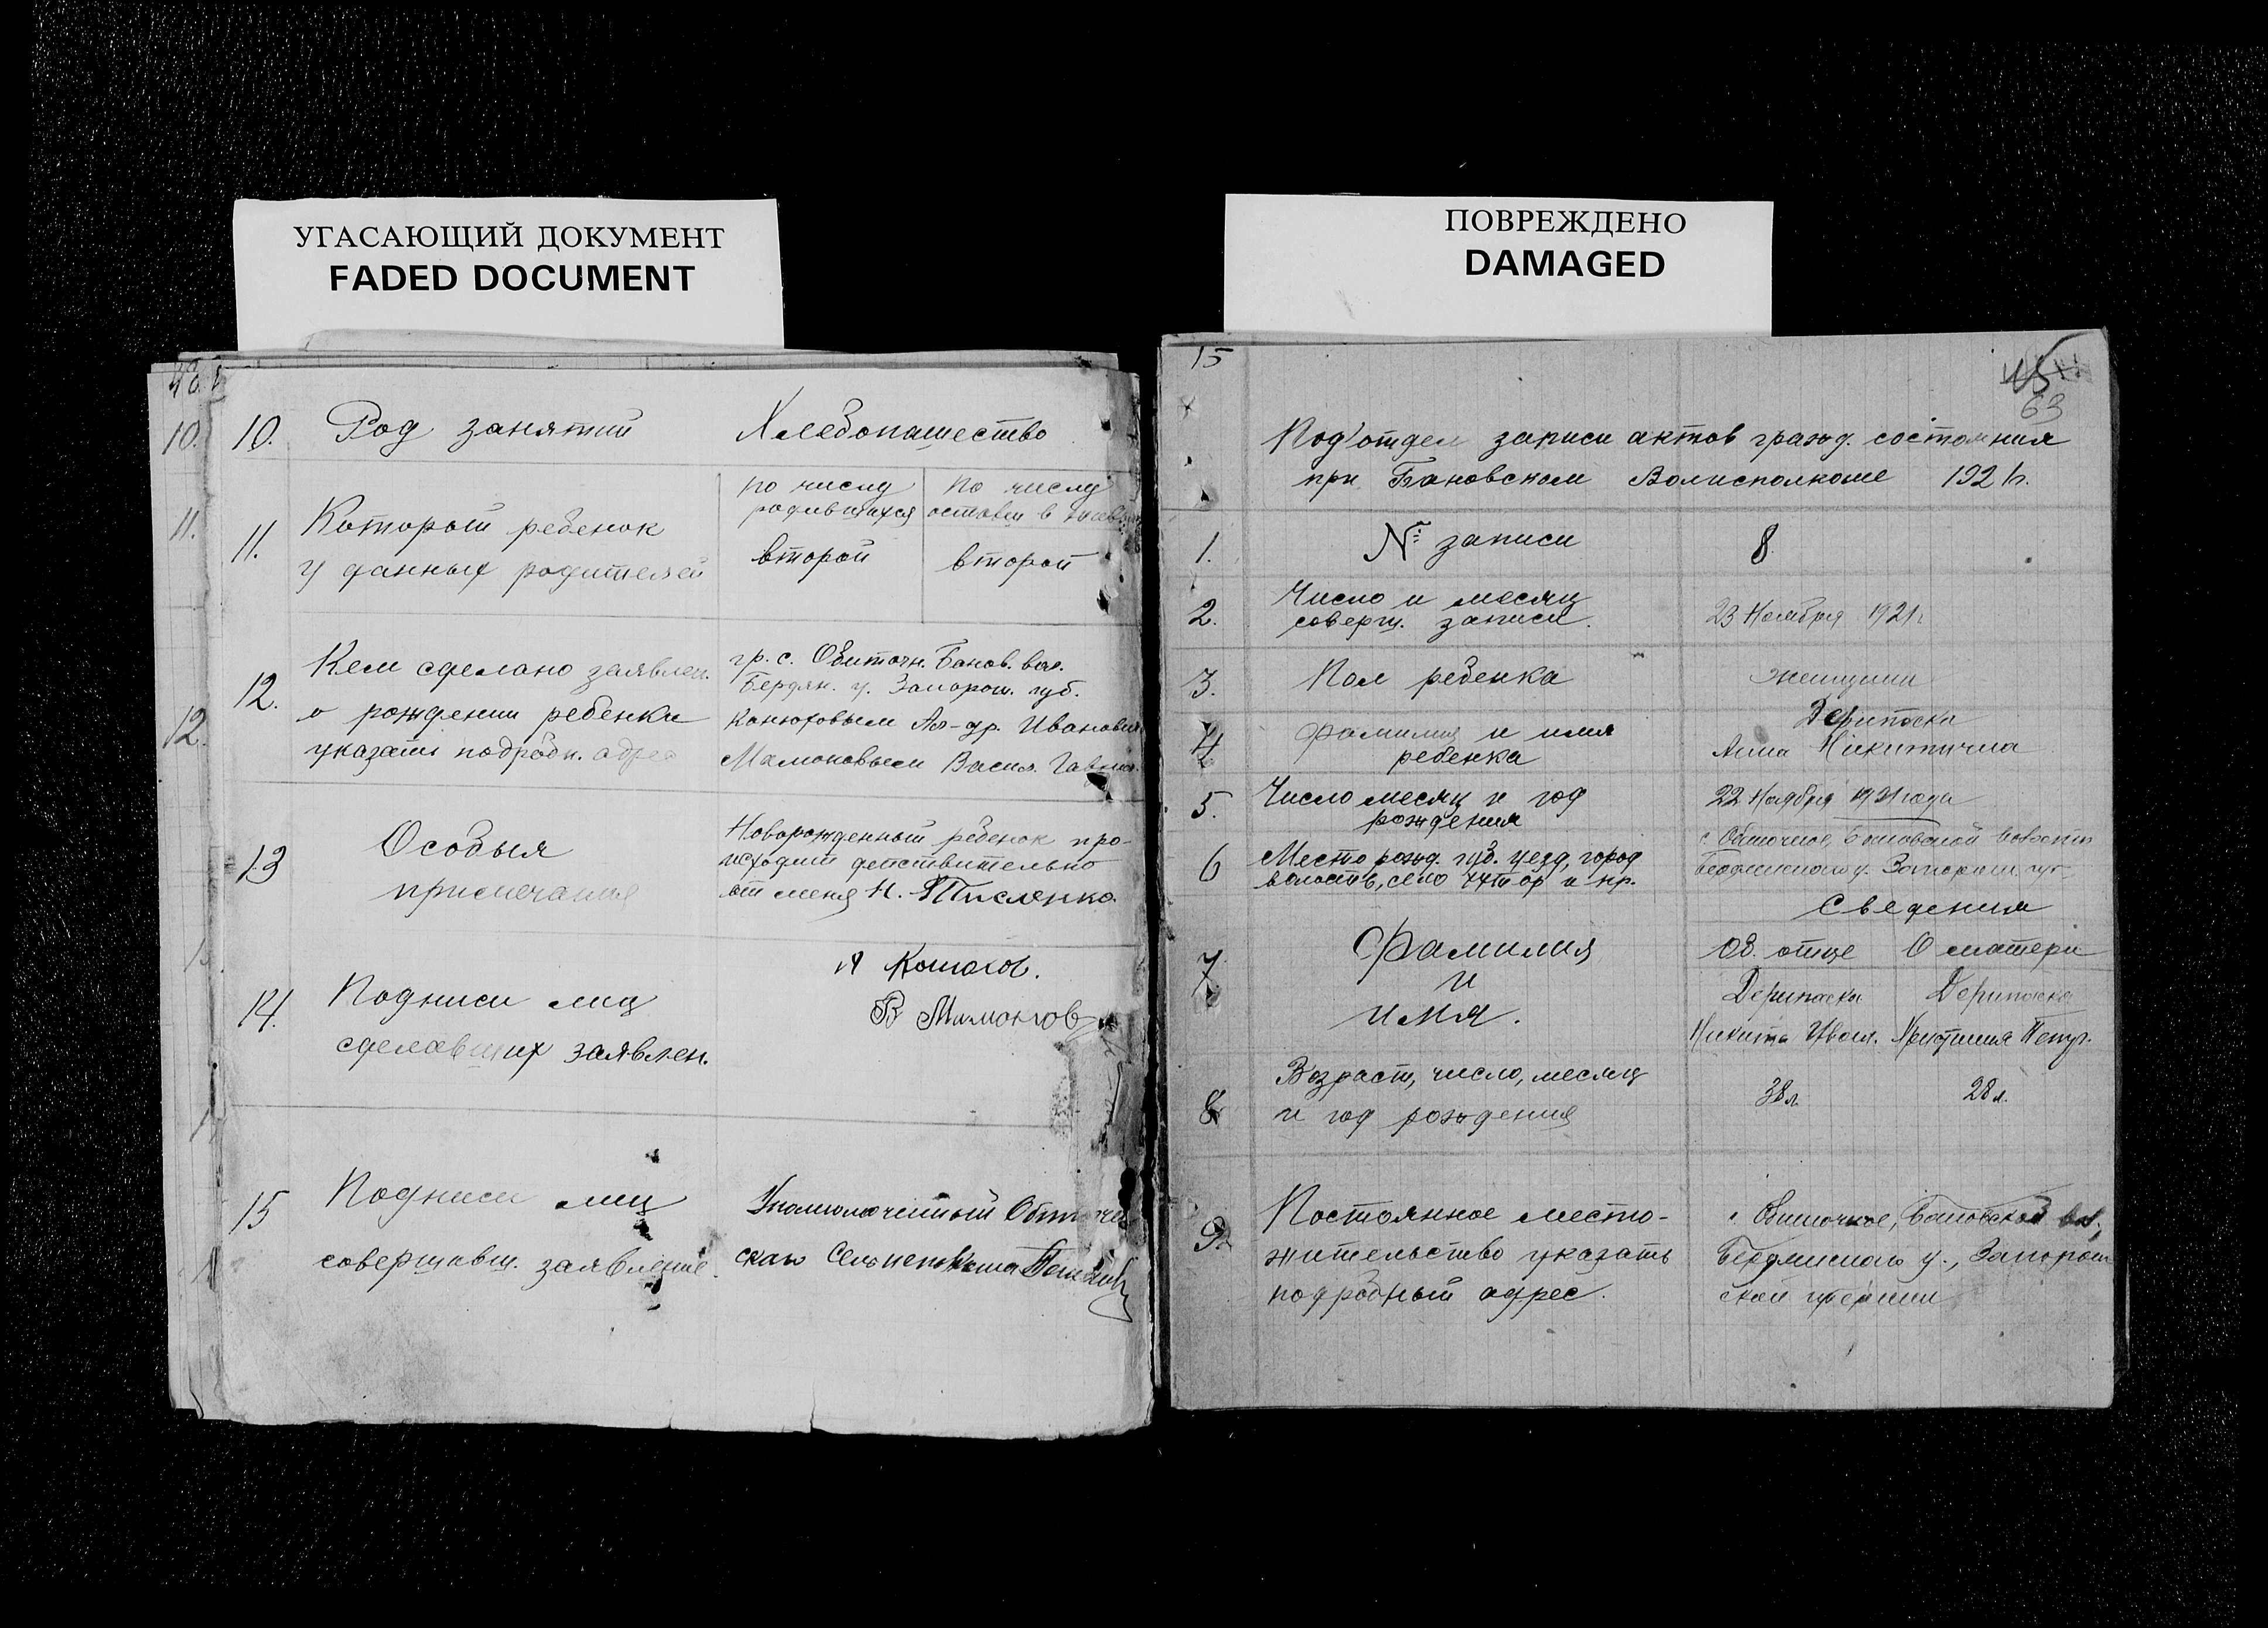 УГАСАЮЩИЙ ДОКУМЕНТ
FADED DOCUMENT
10. 10. Род занятий Хлебопашество
11. 11. Которой ребенок
у данных родителей
по числу родившихся второй
по числу оставш в второй
12. 12. Кем сделано заявлен.
о рождении ребенка
указать подробн. адрес
гр. с. Обиточн. Банов. вол.
Бердян. у. Запорож. губ.
Конюховым Ал-др. Иванов
Мамоновым Васил.
13 Особыя
примечания
Новорожденный ребенок про-
исходит действительно
от меня Н. Писленко.
14. Подписи лиц
сделавших заявлен.
В Мамонтов
15 Подписи лиц
совершавш. заявление.
Уполномоченный
ПОВРЕЖДЕНО
DAMAGED
15
45
63
Под'отдел записи актов гражд. состояния
при Бановском Волисполкоме 1921г.
1. № записи 8
2. Число и месяц
соверш. записи.
23 Ноября 1921г
3. Пол ребенка женщина
4 Фамилия и имя
ребенка
Дерипаска
Анна Никитична
5. Число месяц и год
рождения
22 Ноября 1921 года
6 Место рожд. губ. уезд, город
волость, село хутор и пр.
с. Обиточное, Бановской волости
Бердянского у. Запорож. губ
Сведения
7 Фамилия
и
имя.
Об. отце О матери
Дерипаска Дерипаска
Никита Иван.
8 Возраст, число, месяц
и год рождения
38л. 28л.
9. Постоянное место-
жительство указать
подробный адрес.
с Обиточное, Бановской вол.
Бердянского у., Запорож
ской губернии